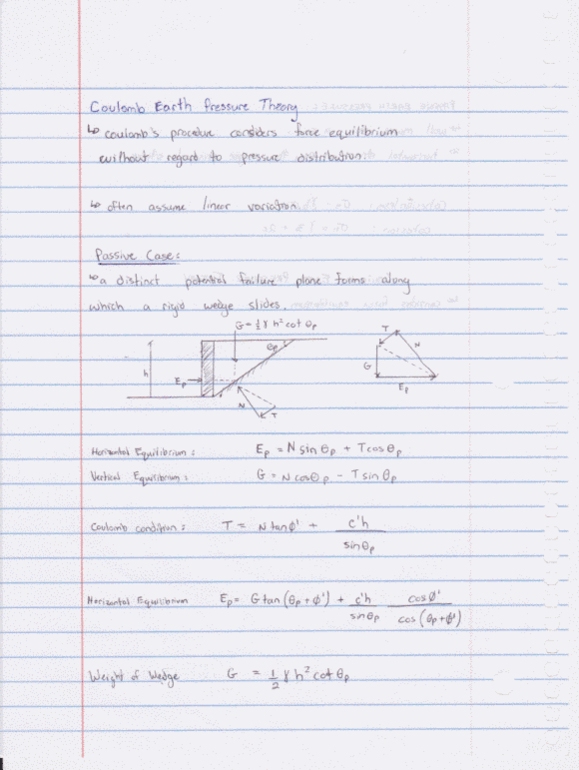 Coulomb Earth Pressure Theory
↳ coulomb's procedue considers force equilibrium
without regard to pressure distribution.
↳ often assume linear variation
Passive Case:
↳ a distinct potential failure plane forms along
which a rigid wedge slides.
G = ½ γ h² cot θp
h
Ep
θp
N
T
T
N
G
Ep
Horizontal Equilibrium: Ep = N sin θp + T cos θp
Vertical Equilibrium: G = N cos θp - T sin θp
Coulomb condition: T = N tan ϕ' + c'h / sin θp
Horizontal Equilibrium Ep = G tan (θp + ϕ') + c'h / sin θp cos ϕ' / cos (θp + ϕ')
Weight of Wedge G = ½ γ h² cot θp